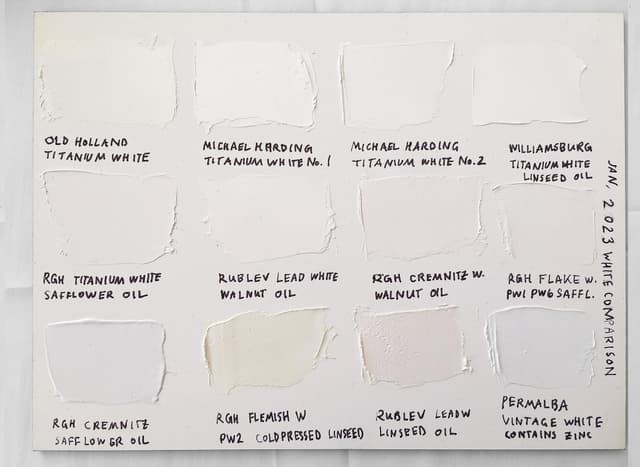 OLD HOLLAND
TITANIUM WHITE
MICHAEL HARDING
TITANIUM WHITE No. 1
MICHAEL HARDING
TITANIUM WHITE No. 2
WILLIAMSBURG
TITANIUM WHITE
LINSEED OIL
RGH TITANIUM WHITE
SAFFLOWER OIL
RUBLEV LEAD WHITE
WALNUT OIL
RGH CREMNITZ W.
WALNUT OIL
RGH FLAKE W.
PW1 PW6 SAFFL.
RGH CREMNITZ
SAFFLOWER OIL
RGH FLEMISH W
PW2 COLDPRESSED LINSEED
RUBLEV LEAD W
LINSEED OIL
PERMALBA
VINTAGE WHITE
CONTAINS ZINC
JAN, 2 023 WHITE COMPARISON